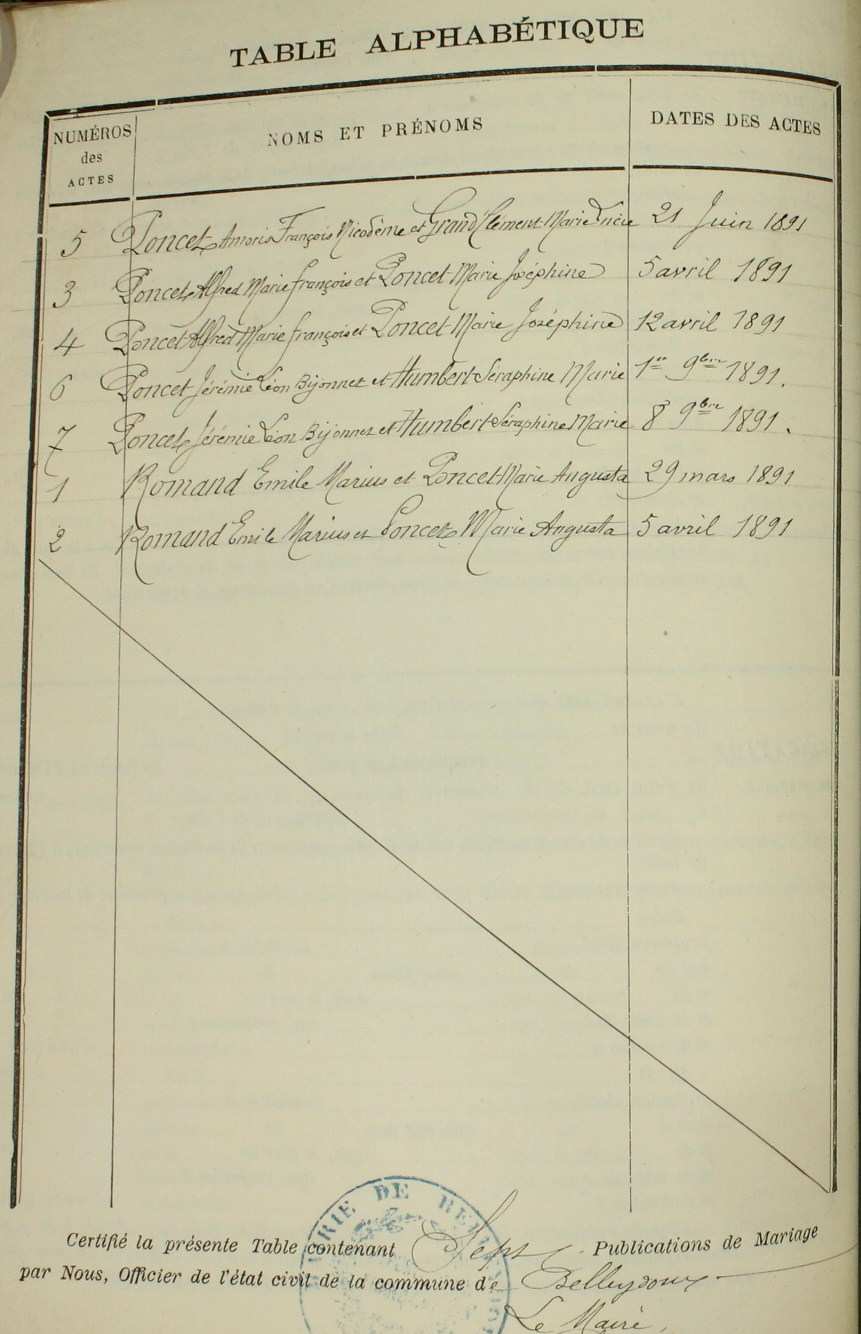 TABLE ALPHABÉTIQUE
NUMÉROS des ACTES NOMS ET PRÉNOMS DATES DES ACTES
5 Poncet Amoris François Nicodème et Grand Clément Marie 21 Juin 1891
3 Poncet Alfred Marie françois et Poncet Marie Joséphine 5 avril 1891
4 Poncet Alfred Marie françois et Poncet Marie Joséphine 12 avril 1891
6 Poncet Jérémie Léon Bijonnet et Humbert Séraphine Marie 1er 9bre 1891.
7 Poncet Jérémie Léon Bijonnet et Humbert Séraphine Marie 8 9bre 1891.
1 Romand Emile Marius et Poncet Marie Angusta 29 mars 1891
2 Romand Emile Marius et Poncet Marie Angusta 5 avril 1891
Certifié la présente Table contenant Sept Publications de Mariage
par Nous, Officier de l'état civil de la commune de Belleydoux
Le Maire,
MAIRIE DE